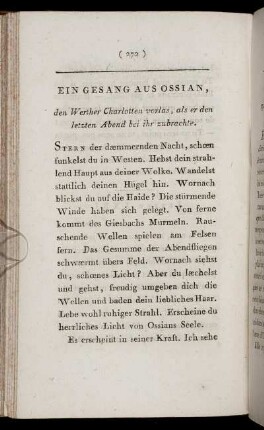 ( 272 )
EIN GESANG AUS OSSIAN,
den Werther Charlotten vorlas, als er den
letzten Abend bei ihr zubrachte.
STERN der dœmmernden Nacht, schœn
funkelst du in Westen. Hebst dein strah-
lend Haupt aus deiner Wolke. Wandelst
stattlich deinen Hügel hin. Wornach
blickst du auf die Haide? Die stürmende
Winde haben sich gelegt. Von ferne
kommt des Giesbachs Murmeln. Rau-
schende Wellen spielen am Felsen
fern. Das Gesumme der Abendfliegen
schwærmt übers Feld. Wornach siehst
du, schœnes Licht? Aber du læchelst
und gehst, freudig umgeben dich die
Wellen und baden dein liebliches Haar.
Lebe wohl ruhiger Strahl. Erscheine du
herrliches Licht von Ossians Seele.
Es erscheint in seiner Kraft. Ich sehe